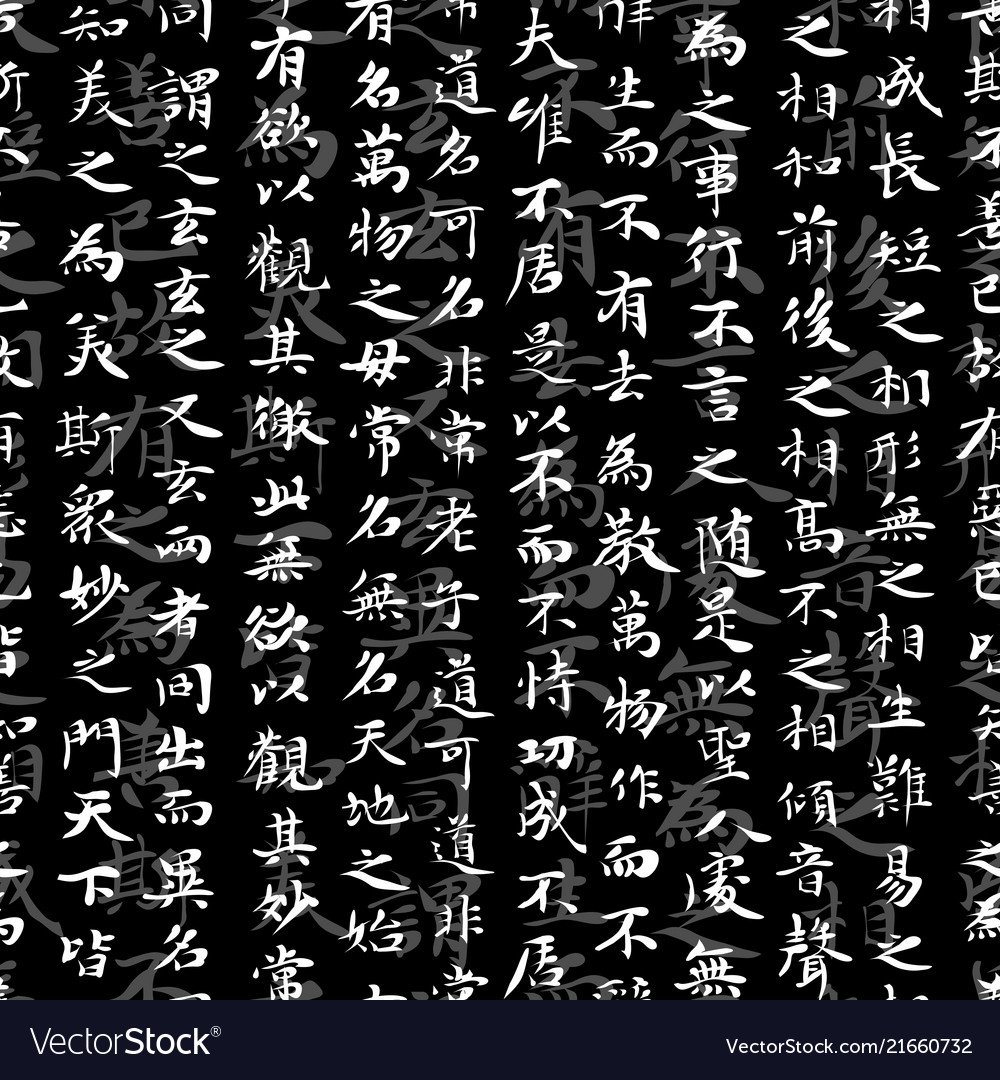 斯不善已故有惡已皆知善之為
相成長短之相形無之相生難易之相
之相和前後之相高不之相傾音聲
為之事行不言之随是以聖人處無
辭生而不有去為教萬物作而不辭
夫唯不居是以不而不恃功成不居
常道名可名非常老子道可道非常
有名萬物之母常名無名天地之始
有欲以觀其徼此無欲以觀其妙常
同謂之玄玄之又玄兩者同出而異名
知美之為美斯衆妙之門天下皆
VectorStock®
VectorStock.com/21660732